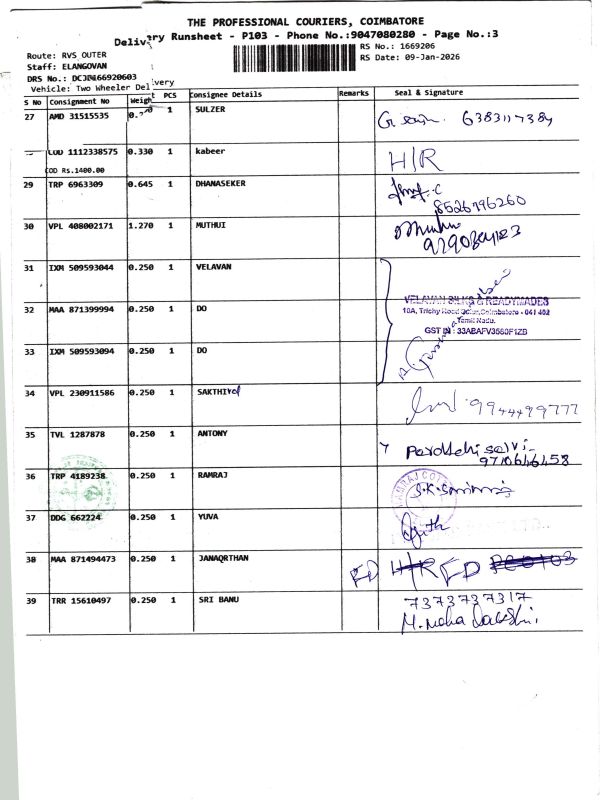 THE PROFESSIONAL COURIERS, COIMBATORE
Delivery Runsheet - P103 - Phone No.:9047080280 - Page No.:3
Route: RVS OUTER
RS No.: 1669206
Staff: ELANGOVAN
RS Date: 09-Jan-2026
DRS No.: DCJM166920603
Vehicle: Two Wheeler Delivery
S No Consignment No Weight PCS Consignee Details Remarks Seal & Signature
27 AMD 31515535 1 SULZER 6383117384
COD 1112338575 0.330 1 kabeer H/R
COD Rs.1400.00
29 TRP 6963309 0.645 1 DHANASEKER
8526796260
30 VPL 408002171 1.270 1 MUTHUI
31 IXM 509593044 0.250 1 VELAVAN
VELAVAN SILKS & READYMADES
32 MAA 871399994 0.250 1 DO
Tamil Nadu.
GST IN : 33ABAFV3580F1ZB
33 IXM 509593094 0.250 1 DO
34 VPL 230911586 0.250 1 SAKTHIvel 9944499777
35 TVL 1287878 0.250 1 ANTONY
9710646458
36 TRP 4189238 0.250 1 RAMRAJ
37 DDG 662224 0.250 1 YUVA
38 MAA 871494473 0.250 1 JANAQRTHAN FD H/R FD
39 TRR 15610497 0.250 1 SRI BANU 7373737317